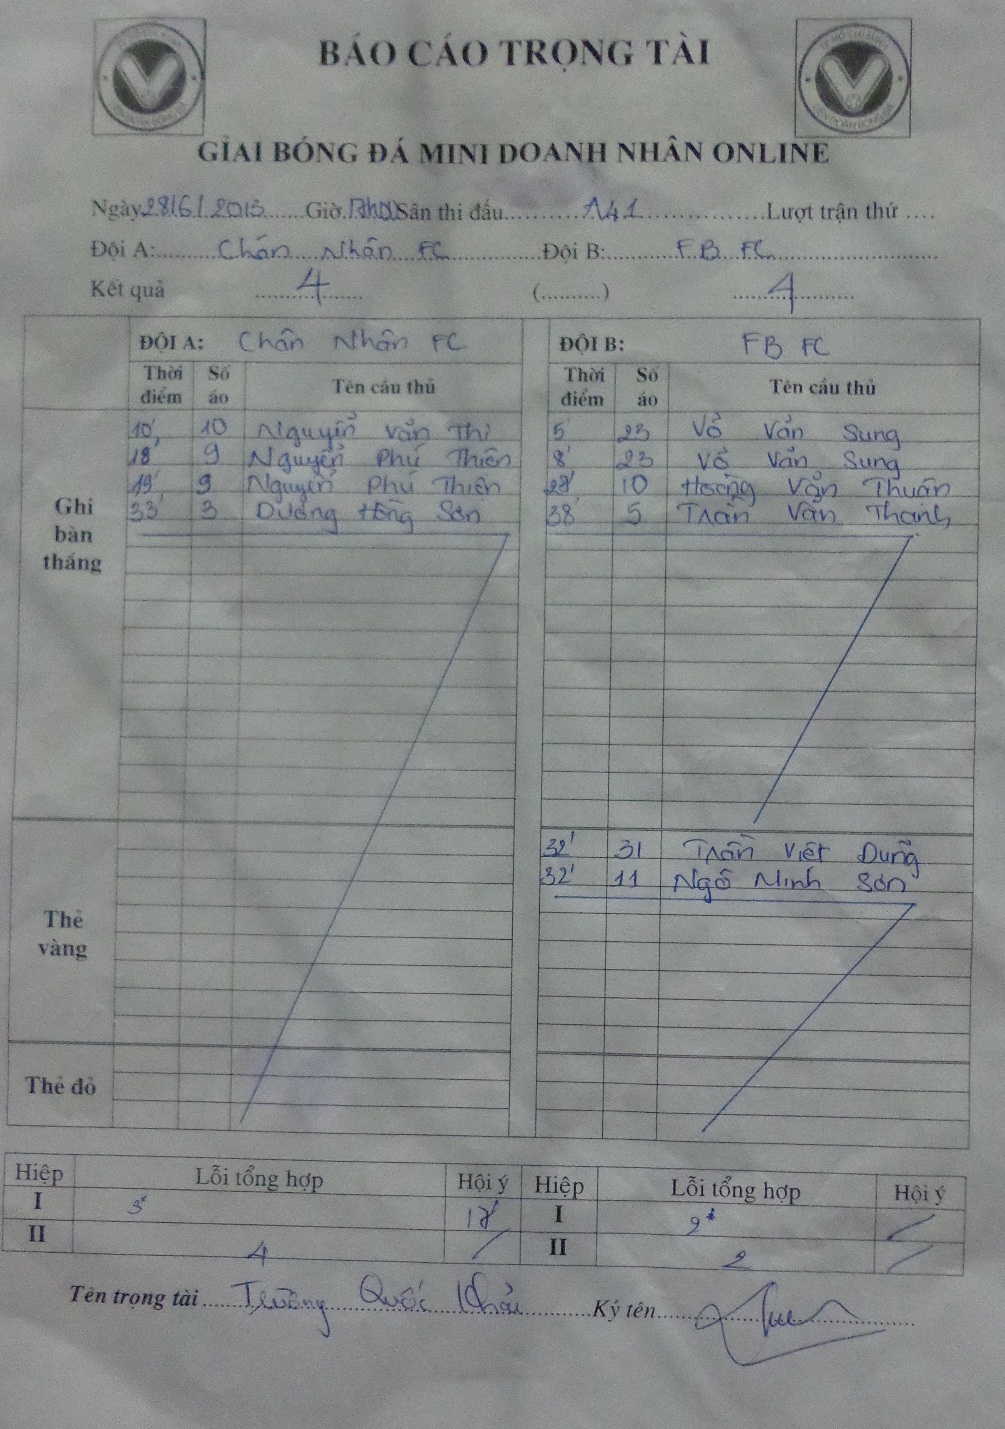 BÁO CÁO TRỌNG TÀI
GIẢI BÓNG ĐÁ MINI DOANH NHÂN ONLINE
Ngày 28/6/2013 Giờ Sân thi đấu A41 Lượt trận thứ
Đội A: Chân Nhân FC Đội B: FB FC
Kết quả 4 (..........) 4
ĐỘI A: Chân Nhân FC ĐỘI B: FB FC
Thời điểm Số áo Tên cầu thủ Thời điểm Số áo Tên cầu thủ
Ghi bàn thắng
10' 10 Nguyễn Văn Thi 5' 23 Võ Văn Sung
18' 9 Nguyễn Phú Thiên 8' 23 Võ Văn Sung
19' 9 Nguyễn Phú Thiên 28' 10 Hoàng Văn Thuân
33' 3 Dương Hồng Sơn 38' 5 Trần Văn Thanh
Thẻ vàng
32' 31 Trần Việt Dũng
32' 11 Ngô Minh Sơn
Thẻ đỏ
Hiệp Lỗi tổng hợp Hội ý Hiệp Lỗi tổng hợp Hội ý
I 3 17' I
II 4 II 2
Tên trọng tài Trương Quốc Khải Ký tên